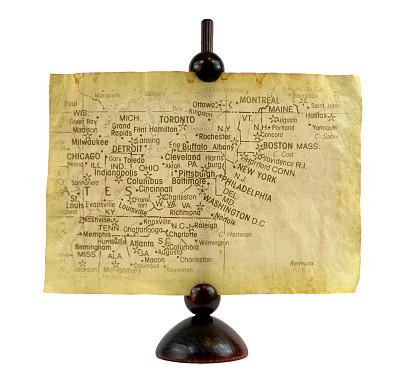 Marquette
Sudbury
Ottawa MONTRÉAL
Saint John
Paul
MAINE
Kingston
Halifax
WIS.
MICH.
VT.
Augusta
Green Bay
Grand Rapids
Flint Hamilton
TORONTO
Yarmouth
Madison
N.Y. N.H. Portland
Concord
C. Sable
Milwaukee
Lansing
Rochester
Erie Buffalo Albany
BOSTON MASS.
CHICAGO
DETROIT
Cleveland
C. Cod
Gary Toledo
Harrisburg
Providence R.I.
Peoria ILL. IND. OHIO
Akron PA.
Hartford CONN.
Indianapolis
Pittsburgh
NEW YORK
Springfield
Columbus
Baltimore
N.J.
PHILADELPHIA
Cincinnati
DEL.
MD.
ATES
WASHINGTON D.C.
St. Louis
Evansville
Frankfort
Charleston
W. VA. VA.
Louisville
Richmond
KY.
Norfolk
Nashville
Knoxville
Raleigh
TENN.
Chattanooga
N.C.
Memphis
Charlotte
C. Hatteras
Huntsville
Atlanta
S.C.
Wilmington
Birmingham
Columbia
MISS. ALA.
GA.
Augusta
Macon
Charleston
Bermuda
Jackson
Montgomery
Columbus
Savannah
(U.K.)